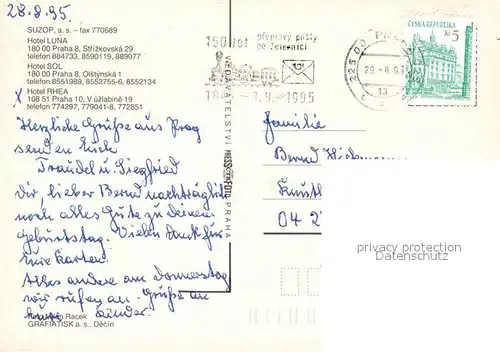 28.8.95.
SUZOP, a. s. – fax 770689
Hotel LUNA
180 00 Praha 8, Střížkovská 29
telefon 884733, 8590119, 889077
Hotel SOL
180 00 Praha 8, Olštýnská 1
telefon 8551989, 8552755-6, 8552134
x Hotel RHEA
108 51 Praha 10, V úžlabině 19
telefon 774297, 779041-8, 772851
Herzliche Grüße aus Prag
senden Euch
Traudel u. Siegfried
Dir, lieber Bernd nachträglich
noch alles Gute zu deinem
Geburtstag. Vielen Dank für
Eure Karten.
Alles andere am Donnerstag
wir rufen an. Grüße an
Kinder.
Racek
GRAFIATISK a. s., Děčín
VYDAVATELSTVÍ
PRAHA
150 let přepravy pošty
po železnici
1.9.-1995
225 00 PRA
29.-8.9
13
ČESKÁ REPUBLIKA
Kč 5
Familie
Bernd
04 2
copyright protection
ansichtskarten